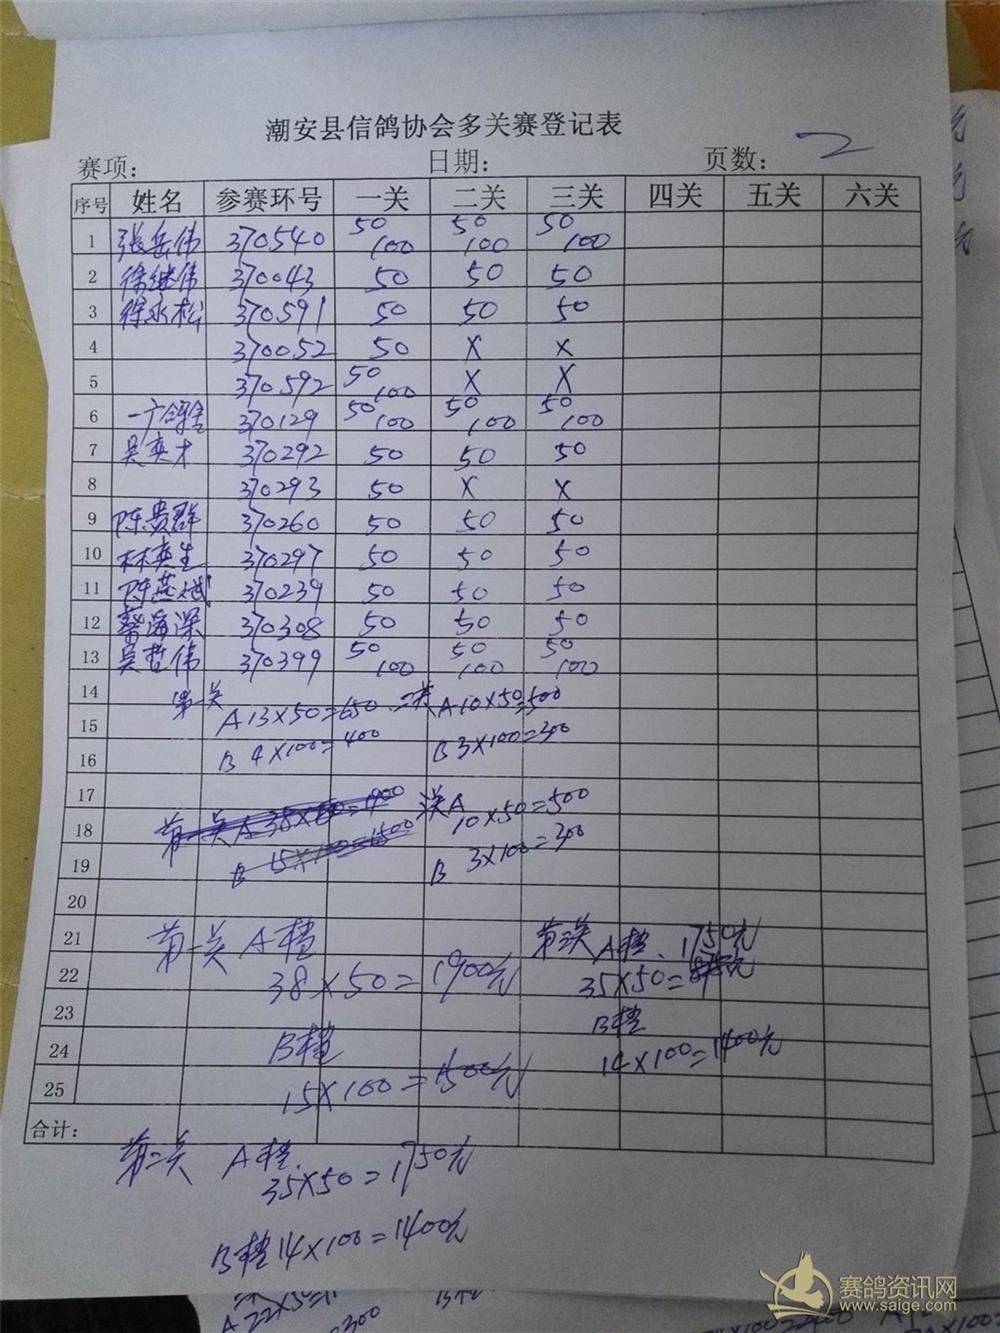 潮安县信鸽协会多关赛登记表
赛项: 日期: 页数: 2
序号 姓名 参赛环号 一关 二关 三关 四关 五关 六关
1 张岳伟 370540 50 100 50 100 50 100
2 徐继伟 370043 50 50 50
3 徐永松 370591 50 50 50
4 370052 50 X X
5 370592 50 100 X X
6 一广鸽舍 370129 50 100 50 100 50 100
7 吴奕才 370292 50 50 50
8 370293 50 X X
9 陈贵群 370260 50 50 50
10 林英生 370297 50 50 50
11 陈燕斌 370239 50 50 50
12 蔡海深 370308 50 50 50
13 吴哲伟 370399 50 100 50 100 50 100
14 第一关 A 13X50=650 二关 A 10X50=500
15
16 B 4X100=400 B 3X100=300
17
18 第一关 A 38X50=1900 A 10X50=500
19 B 15X100=1500 B 3X100=300
20
21 第一关 A档 第三关 A档. 1750元
22 38X50=1900元 35X50=
23 B档
24 B档 14X100=1400元
25 15X100=1500元
合计:
第二关 A档. 35X50=1750元
B档 14X100=1400元
A22X50=
300
赛鸽资讯网
www.saige.com